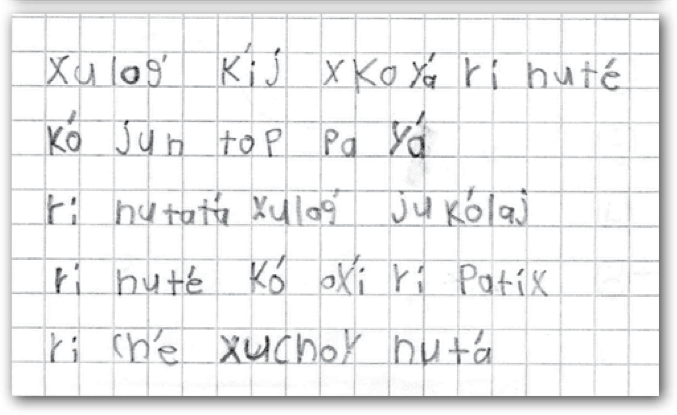 xuloq' k'ij xkoya' ri nute'
k'o jun top pa ya'
ri nutata' xuloq' juk'olaj
ri nute' k'o oxi' ri patix
ri che' xuchoy nuta'